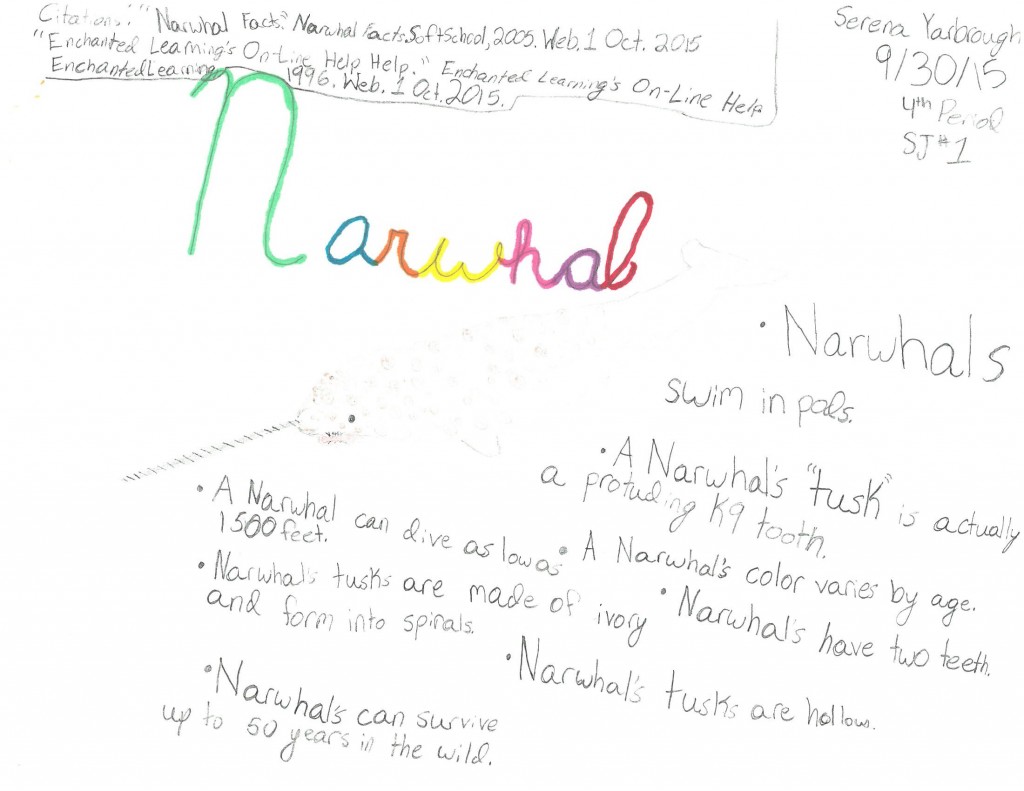 Citations: "Narwhal Facts." Narwhal Facts. SoftSchool, 2005. Web. 1 Oct. 2015
"Enchanted Learning's On-Line Help Help." Enchanted Learning's On-Line Help
EnchantedLearning 1996. Web. 1 Oct. 2015.
Serena Yarbrough
9/30/15
4th Period
SJ #1
Narwhal
• Narwhals
swim in pods.
• A Narwhal's "tusk" is actually
a protuding K9 tooth.
• A Narwhal can dive as low as
1500 feet.
• A Narwhal's color varies by age.
• Narwhal's tusks are made of ivory
and form into spirals.
• Narwhal's have two teeth.
• Narwhal's tusks are hollow.
• Narwhal's can survive
up to 50 years in the wild.